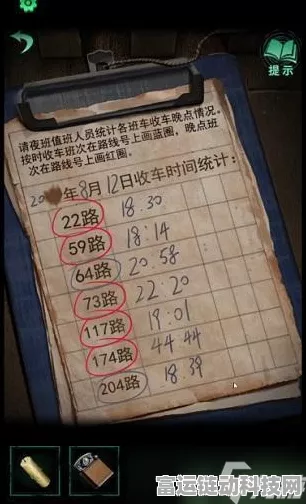 提示
请夜班值班人员统计各班车收车晚点情况。
按时收车班次在路线号上画蓝圈，晚点班
次在路线号上画红圈。
20 年8月12日收车时间统计:
22路 18.30
59路 18:14
64路 20:58
73路 22:20
117路 19:01
174路 44:44
204路 18:39
富运链动科技网